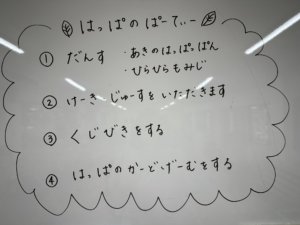 はっぱのぱーてぃー
① だんす ・あきのはっぱっぱん
・ひらひらもみじ
② けーき じゅーすをいただきます
③ くじびきをする
④ はっぱのかーどげーむをする